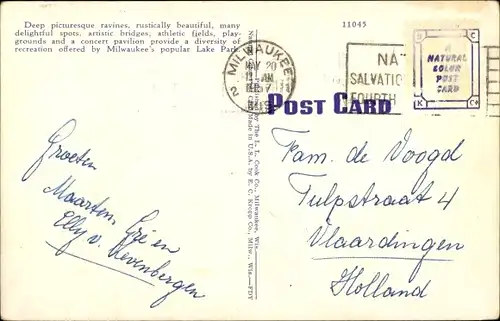 Deep picturesque ravines, rustically beautiful, many
delightful spots, artistic bridges, athletic fields, play-
grounds and a concert pavilion provide a diversity of
recreation offered by Milwaukee's popular Lake Park
11045
MILWAUKEE
MAY 20
2
NA
SALVATIO
FOURTH
A
NATURAL
COLOR
POST
CARD
C
K
C
POST CARD
by The L. L. Cook Co., Milwaukee, Wis.
Made in U.S.A. by E. C. Kropp Co., Milw., Wis.—FDY
Groeten
Maarten, Gré en
Elly v. Nevenbergen
Fam. de Voogd
Tulpstraat 4
Vlaardingen
Holland